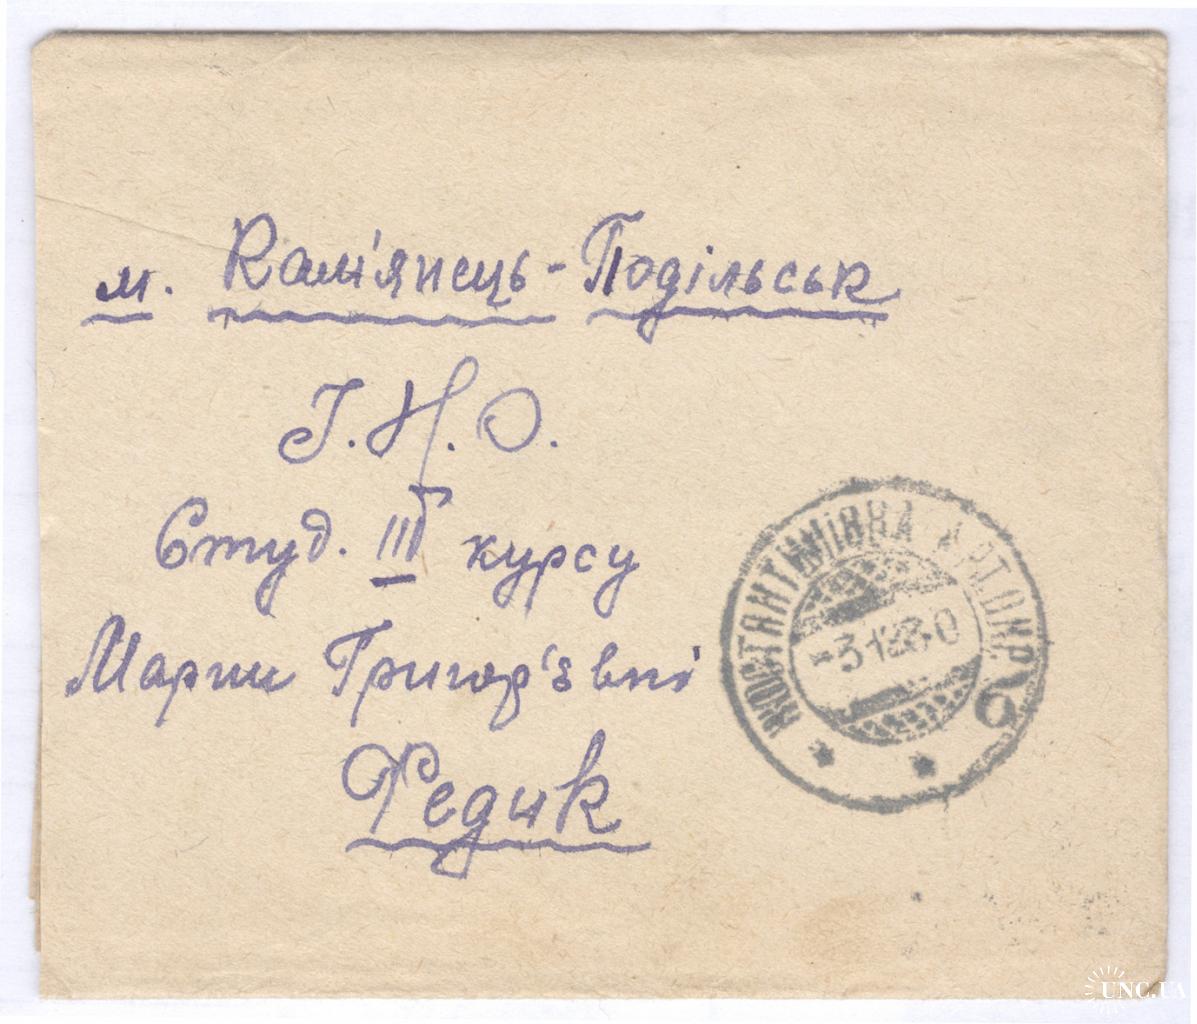 м. Кам'янець-Подільськ
І.Н.О.
Студ. III курсу
Марии Григор'євні
Федик
КОСТАНТИНІВКА АРТ.ОКР.
-3 12 30
б
UNC.UA